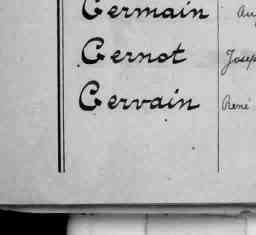 Germain
Gernot
Gervain René